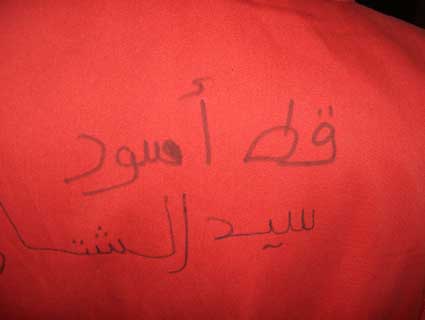 قط أسود
سيد الشتا